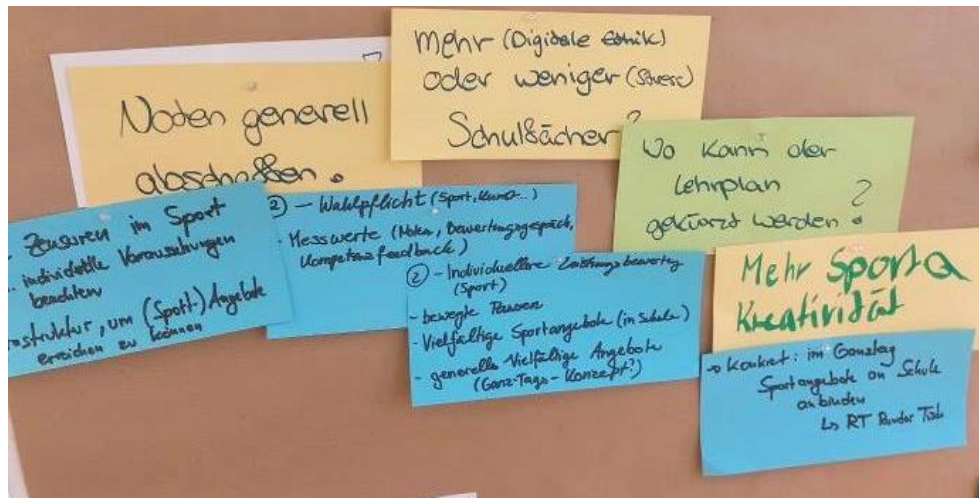 Noten generell
abschaffen.
Mehr (Digitale Ethik)
oder weniger (Stress)
Schulfächer?
Wo kann der
Lehrplan
gekürzt werden?
Mehr Sport &
Kreativität
- Zensuren im Sport
individuelle Voraussetzungen
beachten
struktur, um (Sport-) Angebote
erreichen zu können
② - Wahlpflicht (Sport, Kunst...)
- Messwerte (Noten, Bewertungsgespräch,
Kompetenzfeedback)
② - Individuellere Leistungsbewertung
(Sport)
- bewegte Pausen
- Vielfältige Sportangebote (in Schule)
- generelle Vielfältige Angebote
(Ganz-Tags-Konzept?)
→ Konkret: im Ganztag
Sportangebote an Schule
anbinden
↳ RT Runder Tisch